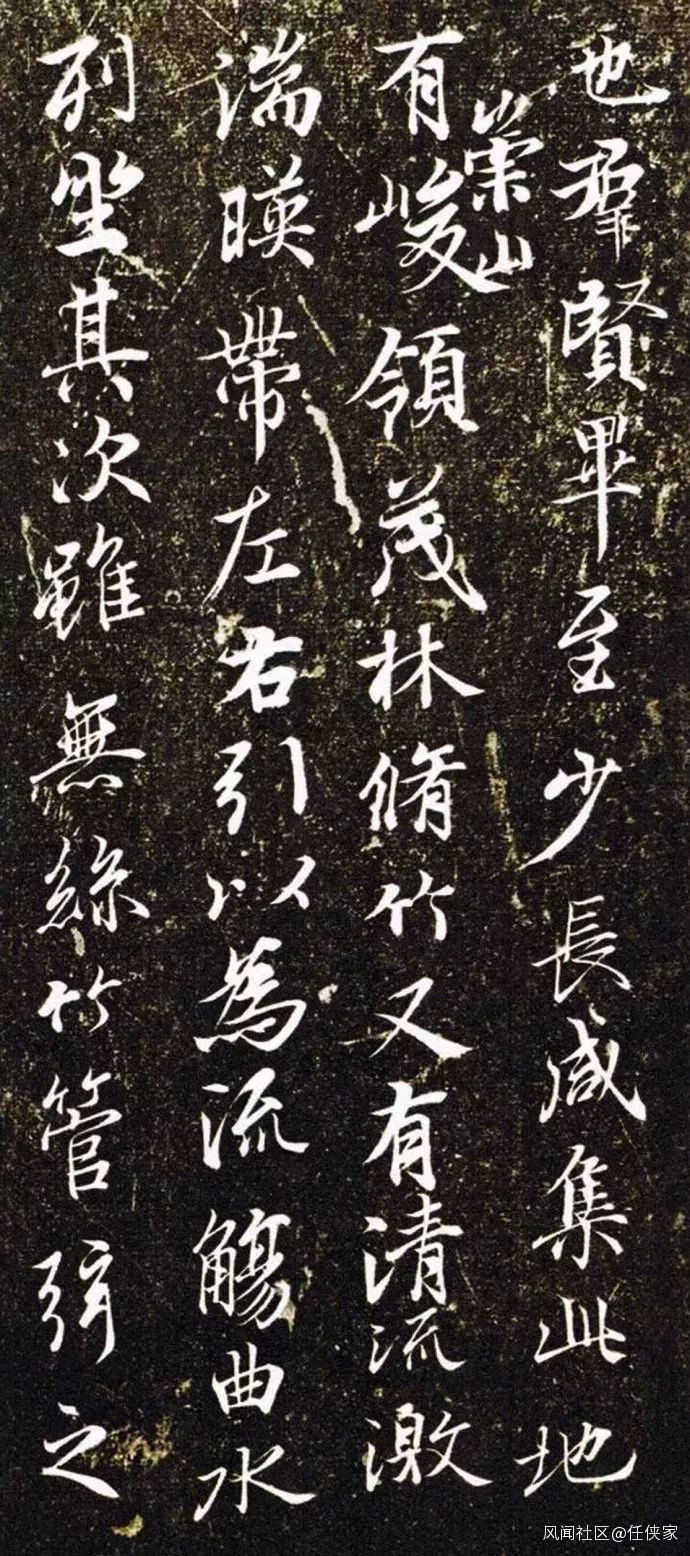 也羣賢畢至少長咸集此地
有崇山峻領茂林脩竹又有清流激
湍暎帶左右引以為流觴曲水
列坐其次雖無絲竹管弦之
风闻社区@任侠家